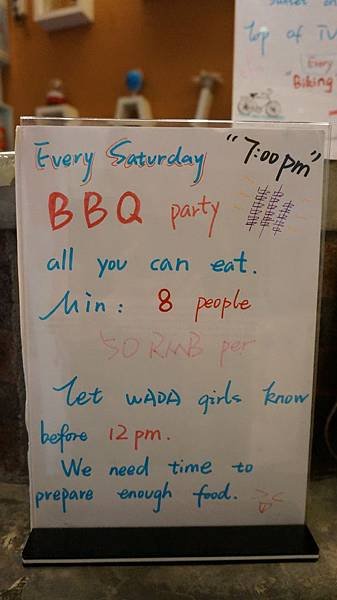 Every Saturday "7:00pm"
BBQ party
all you can eat.
Min: 8 people
50 RMB per
let WADA girls know
before 12pm.
We need time to
prepare enough food.
top of TV
Every
"Biking